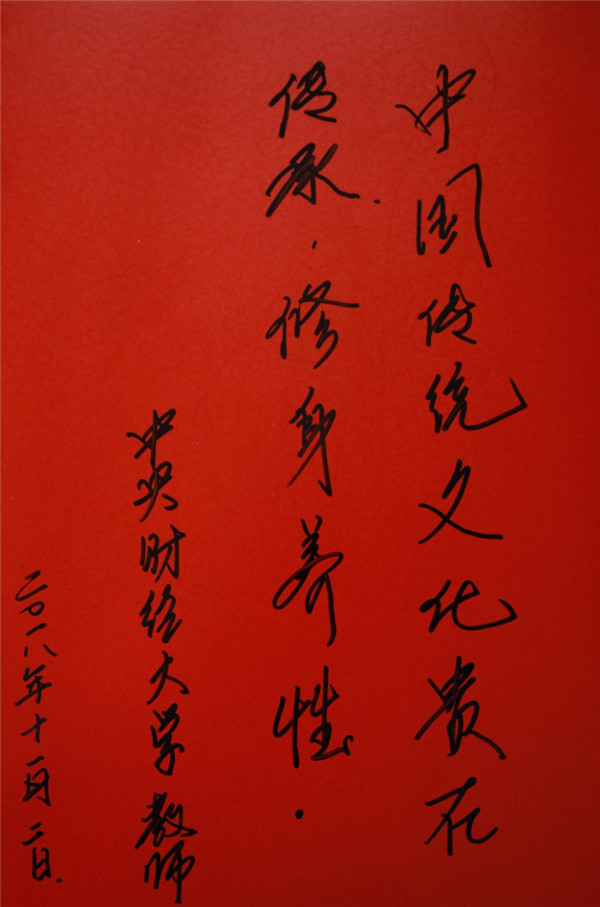 中国传统文化贵在
传承．修身养性．
中央财经大学 教师
二〇一八年十一月二日.